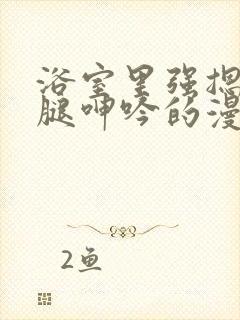 浴室里强摁
腿呻吟的漫
2鱼